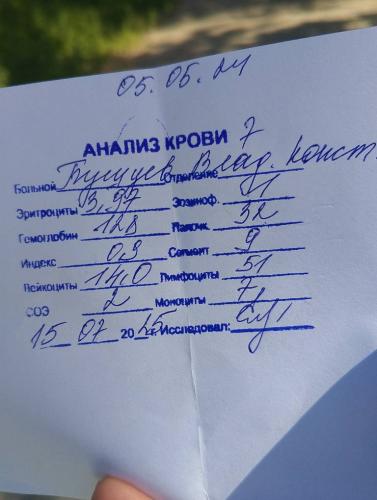 05.05.24
АНАЛИЗ КРОВИ 7
Больной Отделение Влад. Конст.
Эритроциты 3,97 Эозиноф.
Гемоглобин 128 Палочк. 32
Индекс 0,9 Сегмент 9
Лейкоциты 14,0 Лимфоциты 51
СОЭ 2 Моноциты 7
15 07 2025 г. Исследовал: